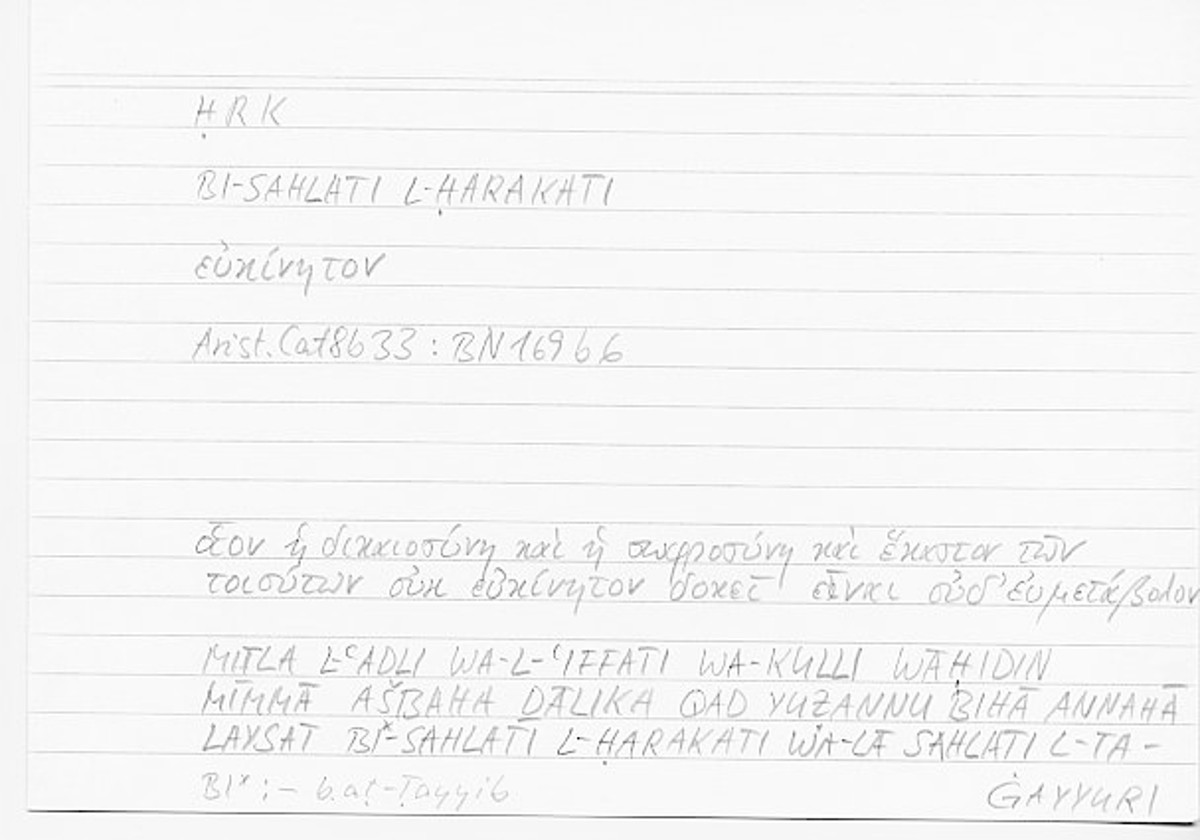 ḤRK
BI-SAHLATI L-ḤARAKATI
εὐκίνητον
Arist. Cat 8b33 : BN 169b6
οἷον ἡ δικαιοσύνη καὶ ἡ σωφροσύνη καὶ ἕκαστον τῶν
τοιούτων οὐκ εὐκίνητον δοκεῖ εἶναι οὐδ' εὐμετάβολον
MIṮLA L-ʿADLI WA-L-ʿIFFATI WA-KULLI WĀḤIDIN
MIMMĀ AŠBAHA ḎĀLIKA QAD YUẒANNU BIHĀ ANNAHĀ
LAYSAT BI*-SAHLATI L-ḤARAKATI WA-LĀ SAHLATI L-TA-
BI* : – b. aṭ-Ṭayyib ĠAYYURI